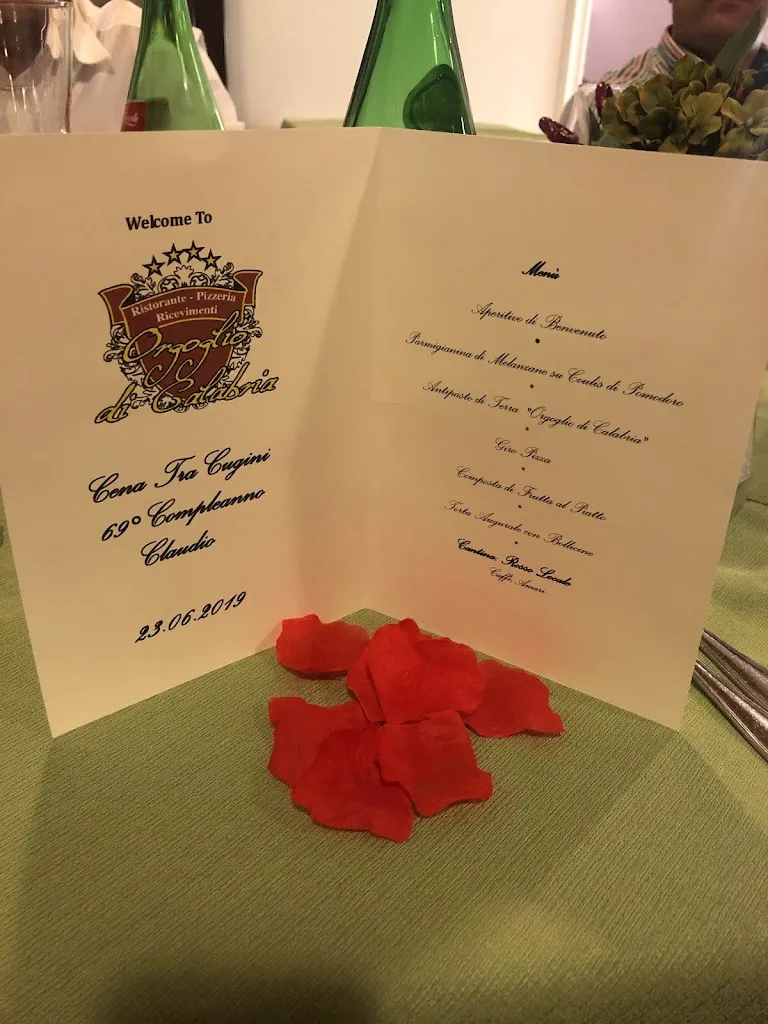 Welcome To
Ristorante - Pizzeria
Ricevimenti
Orgoglio
di Calabria
Cena Tra Cugini
69° Compleanno
Claudio
23.06.2019
Menù
Aperitivo di Benvenuto
Parmigianina di Melanzane su Coulis di Pomodoro
Antipasto di Terra "Orgoglio di Calabria"
Giro Pizza
Composta di Frutta al Piatto
Torta Augurale con Bollicine
Cantina: Rosso Locale
Caffè, Amari